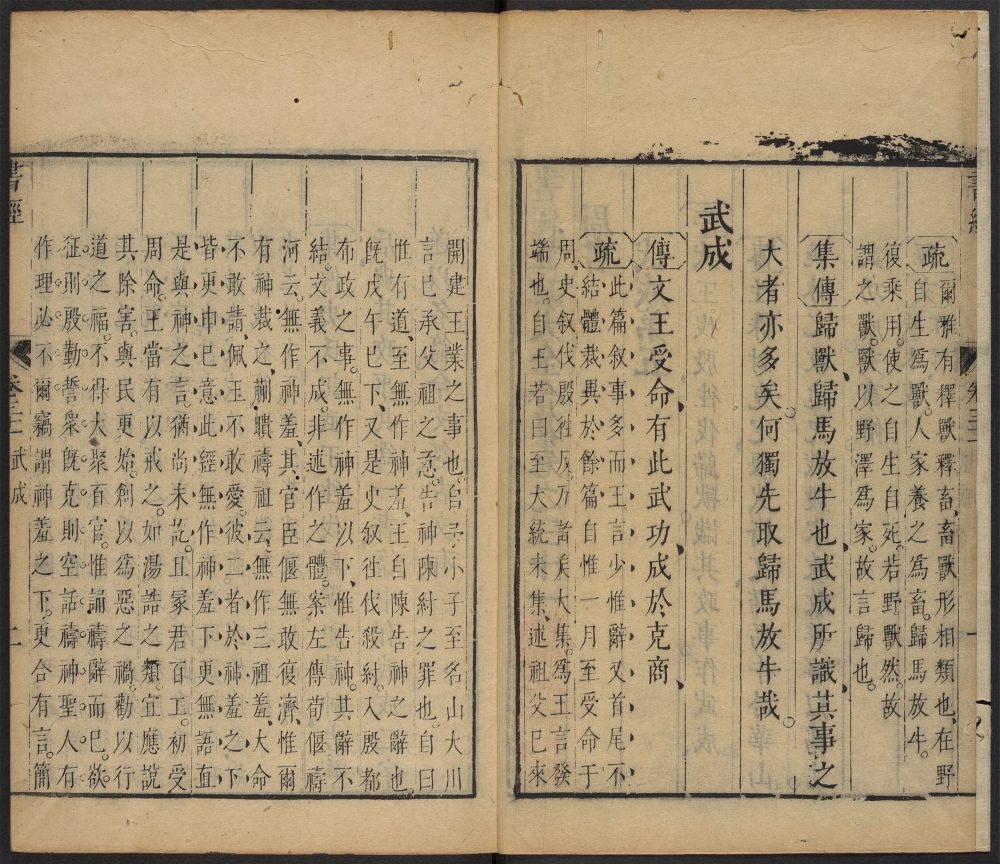 書經
卷三
一
疏
爾雅有釋獸釋畜畜獸形相類也、在野
自生爲獸、人家養之爲畜、歸馬放牛。
復乘用。使之自生自死。若野獸然。故
謂之獸。獸以野澤爲家。故言歸也。
集傳歸獸、歸馬放牛也、武成所識、其事之
大者亦多矣。何獨先取歸馬放牛哉。
武成
傳文王受命、有此武功、成於克商、
疏
此篇叙事多而王言少惟辭又首尾不
結、體裁異於餘篇自惟一月至受命于
周、史叙伐殷徃反、乃諸矦大集。爲王言發
端也。自王若曰至大統未集、述祖父已來
開建王業之事也。自予小子至名山大川
言已承父祖之意。告神陳紂之罪也。自曰
惟有道、至無作神羞、王自陳告神之辭也。
旣戊午巳下、又是史叙徃伐殺紂。入殷都
布政之事。無作神羞以下、惟告神。其辭不
結。文義不成。非述作之體。案左傳荀偃禱
河云。無作神羞、其官臣偃無敢復濟。惟爾
有神裁之、蒯聵禱祖云、無作三祖羞、大命
不敢請、佩玉不敢愛。彼二者於神羞之下
皆更申巳意。此經無作神羞下更無語直
是與神之言。猶尚未訖。且冢君百工。初受
周命。王當有以戒之。如湯誥之類。宜應說
其除害與民更始。創以爲惡之禍。勸以行
道之福。不得大聚百官。惟誦禱辭而巳。欲
征則殷勤誓衆。旣克則空話禱神。聖人有
作理必不爾竊謂神羞之下。更合有言。簡
書經
卷三 武成
二